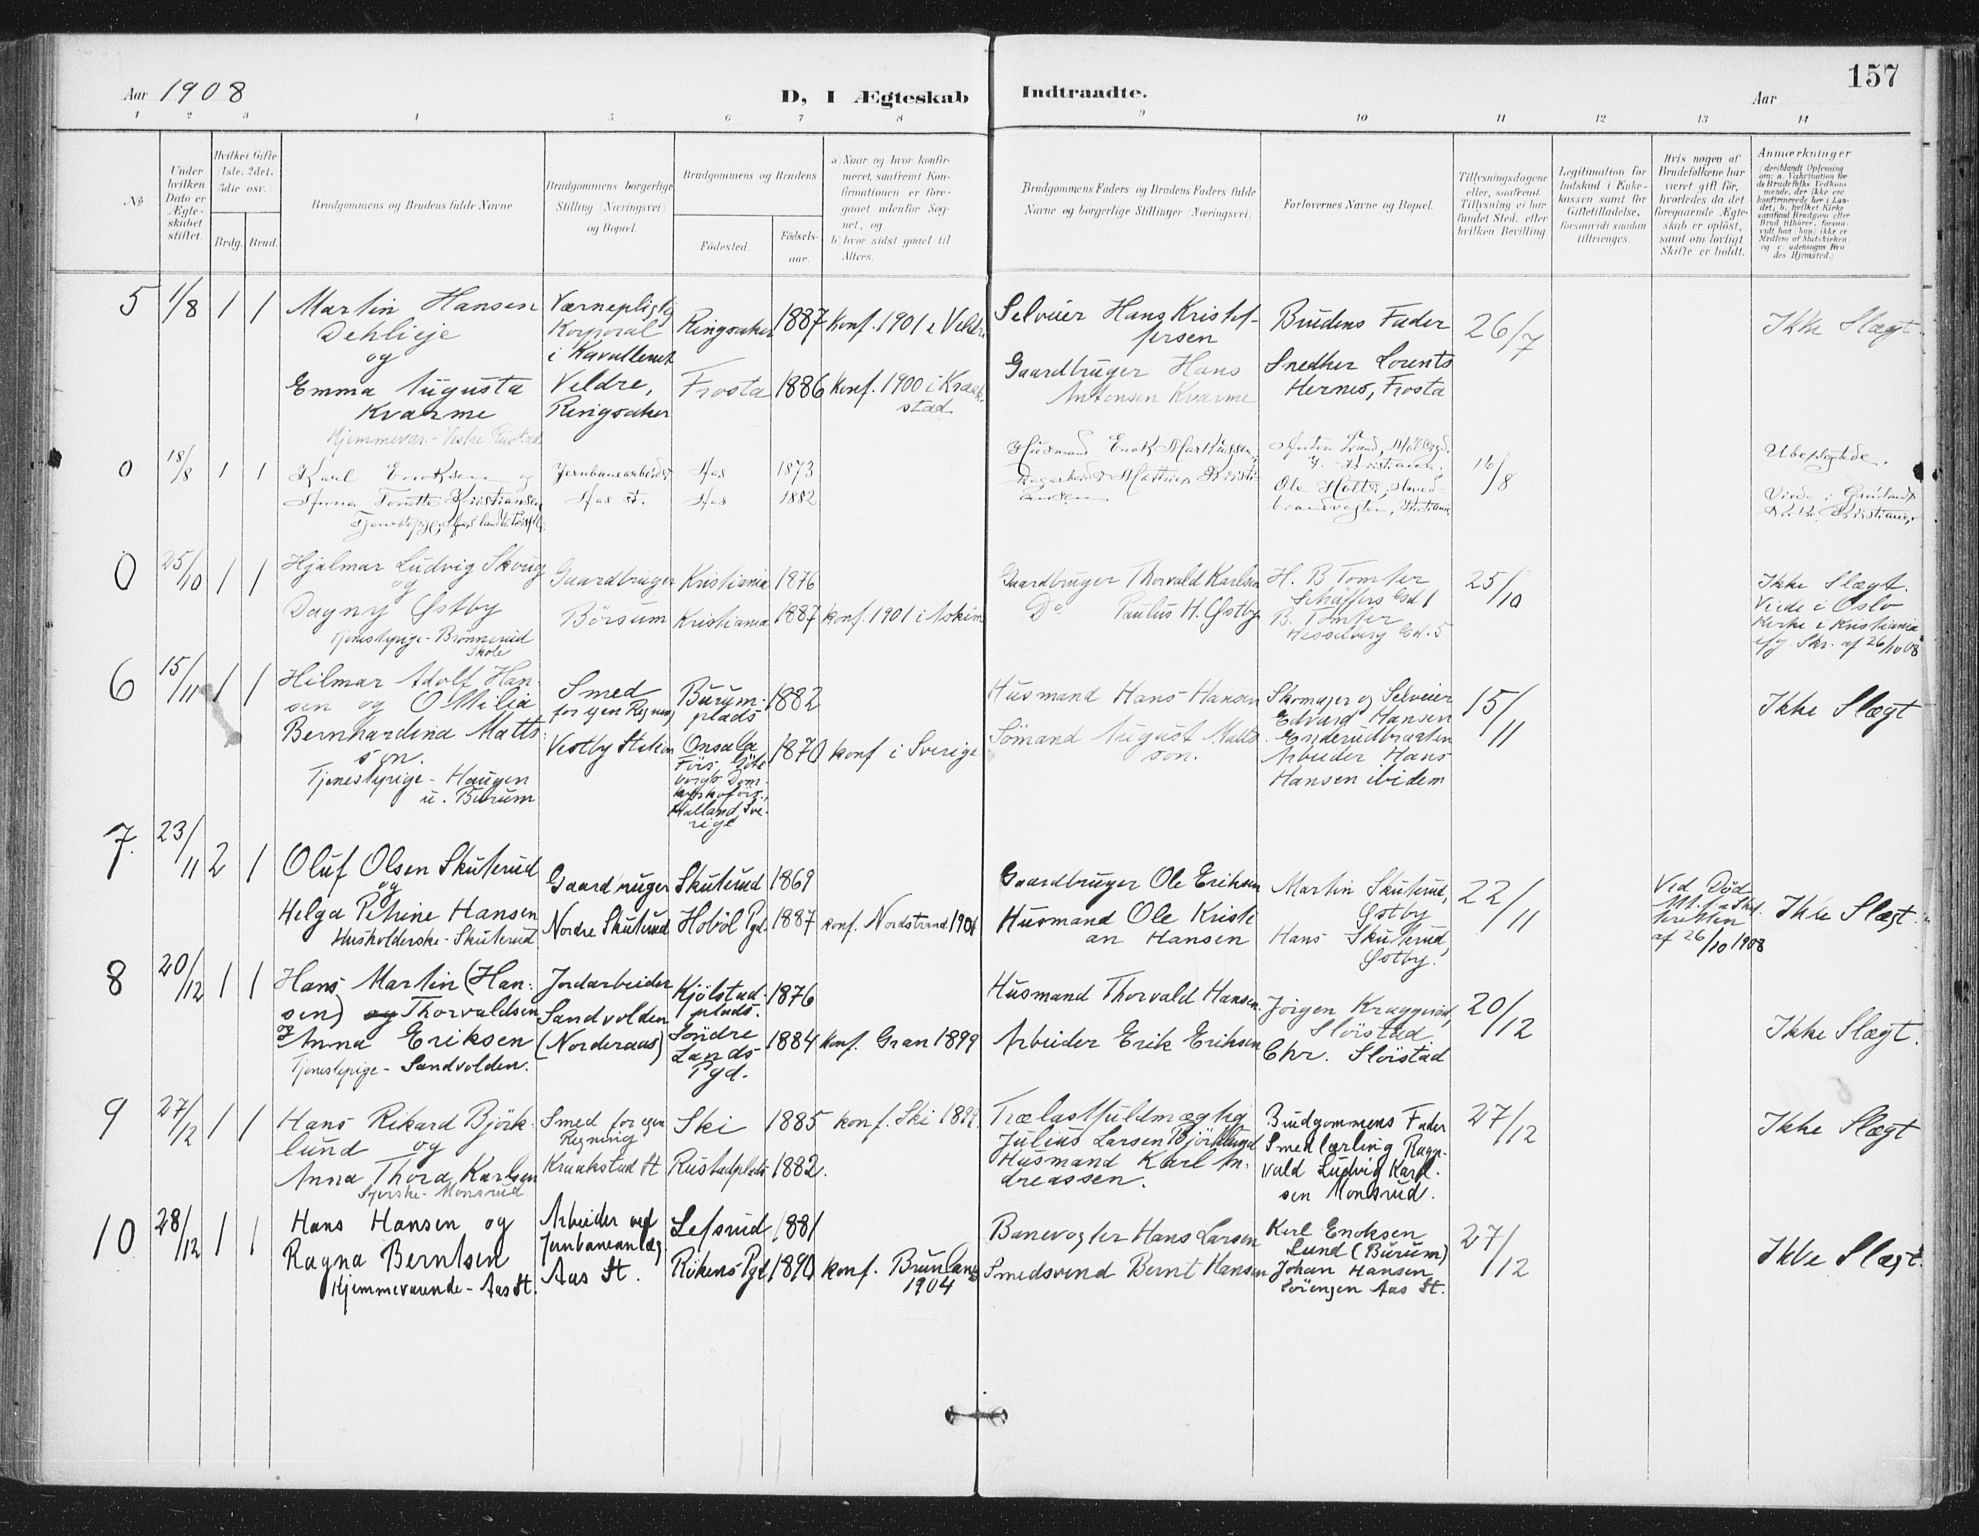 157
Aar 1908
D, I Ægteskab Indtraadte.
Aar
1 2 3 4 5 6 7 8 9 10 11 12 13 14
No
Under hvilken Dato er Ægteskabet stiftet.
Hvilket Gifte (1ste, 2det, 3die osv.)
Brdg. Brud.
Brudgommens og Brudens fulde Navne
Brudgommens borgerlige Stilling (Næringsvei) og Bopæl.
Brudgommens og Brudens
Födested.
Födselsaar.
a) Naar og hvor konfirmeret, saafremt Konfirmationen er foregaaet udenfor Sognet, og
b) hvor sidst gaaet til Alters.
Brudgommens Faders og Brudens Faders fulde Navne og borgerlige Stillinger (Næringsvei)
Forlovernes Navne og Bopæl.
Tillysningsdagene eller, saafremt Tillysning ei har fundet Sted, efter hvilken Bevilling
Legitimation for Indskud i Enkekassen samt for Giftetilladelse, forsaavidt saadan tiltrænges.
Hvis nogen af Brudefolkene har været gift för, hvorledes da det foregaaende Ægteskab er oplöst, samt om lovligt Skifte er holdt.
Anmærkninger
5 1/8 1 1
Martin Hansen
Dehlieje
og
Emma Augusta
Kvarme
Værnepligtig
Korporal
i Kavalleriet
Veldre,
Ringsaker
Ringsaker 1887 konf. 1901 i Veldre
Frosta 1886 konf. 1900 i Kraakstad
Selveier Hans Kristofersen
Gaardbruger Hans
Antonsen Kvarme
Brudens Fader
Snedker Lorents
Hernes, Frosta
26/7
Ikke Slægt
0 18/8 1 1
Karl Enoksen og
Anna Kristiansen
Jernbanearbeider
Aas St.
Aas 1873
Aas 1882
Husmand Enok Markussen
16/8
Ubeslægtede.
0 25/10 1 1
Hjalmar Ludvig Skoug
og
Dagny Østby
Tjenestepige - Brönnerud
Skole
Gaardbruger
Börsum
Kristiania 1876
Kristiania 1887 konf. 1901 i Askim
Gaardbruger Thorvald Karlsen
Do Paulus H. Østby
H. B Tomter
Schäffers Gd 1
B. Tomter
Hesselberg Gd. 5
25/10
Ikke Slægt.
Viede i Oslo
Kirke i Kristiania
efg. Skr. af 26/10 08
6 15/11 1 1
Hilmar Adolf Hansen og Otilia
Bernhardina Mattsson.
Tjenestepige - Haugen
u. Burum
Smed
for egen Regning
Vestby Station
Burumplads 1882
Onsala
Halland, Sverige
1870 konf i Sverige
Husmand Hans Hansen
Sömand August Mattsson.
Skomager og Selveier
Edvard Hansen
Arbeider Hans
Hansen ibidem
15/11
Ikke Slægt
7. 23/11 2 1
Oluf Olsen Skuterud
og
Helga Petrine Hansen
Husholderske - Skuterud
Gaardbruger
Nordre Skuterud
Skuterud 1869
Hoböl Pgd. 1887 konf. Nordstrand
Gaardbruger Ole Eriksen
Husmand Ole Kristian Hansen
Martin Skuterud,
Østby
Hans Skuterud,
Østby.
22/11
Ved Død
af 26/10 1908
Ikke Slægt.
8 20/12 1 1
Hans Martin (Hansen) og Thorvaldsen
og Anna Eriksen
Tjenestepige - Sandvolden.
Jordarbeider
Sandvolden
(Norderaas)
Kjölstadplads. 1876
Söndre
Lands
Pgd.
1884 konf. Gran 1899
Husmand Thorvald Hansen
Arbeider Erik Eriksen
Jörgen Kraggerud,
Slöistad
Chr. Slöistad
20/12
Ikke Slægt.
9 27/12 1 1
Hans Rikard Björklund og
Anna Thora Karlsen
Syerske - Monsrud
Smed for egen
Regning
Kraakstad St.
Ski 1885 konf. Ski 1899
Rustadplads 1882.
Trælastfuldmægtig
Julius Larsen Björklund
Husmand Karl Andreassen.
Brudgommens Fader
Smedlærling Ragnvald Ludvig Karlsen Monsrud.
27/12
Ikke Slægt
10 28/12 1 1
Hans Hansen og
Ragna Berntsen
Hjemmeværende - Aas St.
Arbeider ved
Jernbaneanlæg.
Aas St.
Lefsrud 1881
Rökens Pgd 1890 konf. Brunlanes
1904
Banevogter Hans Larsen
Smedsvend Bernt Hansen
Karl Enoksen
Lund (Burum)
Johan Hansen
Sörensen Aas St.
27/12
Ikke Slægt.